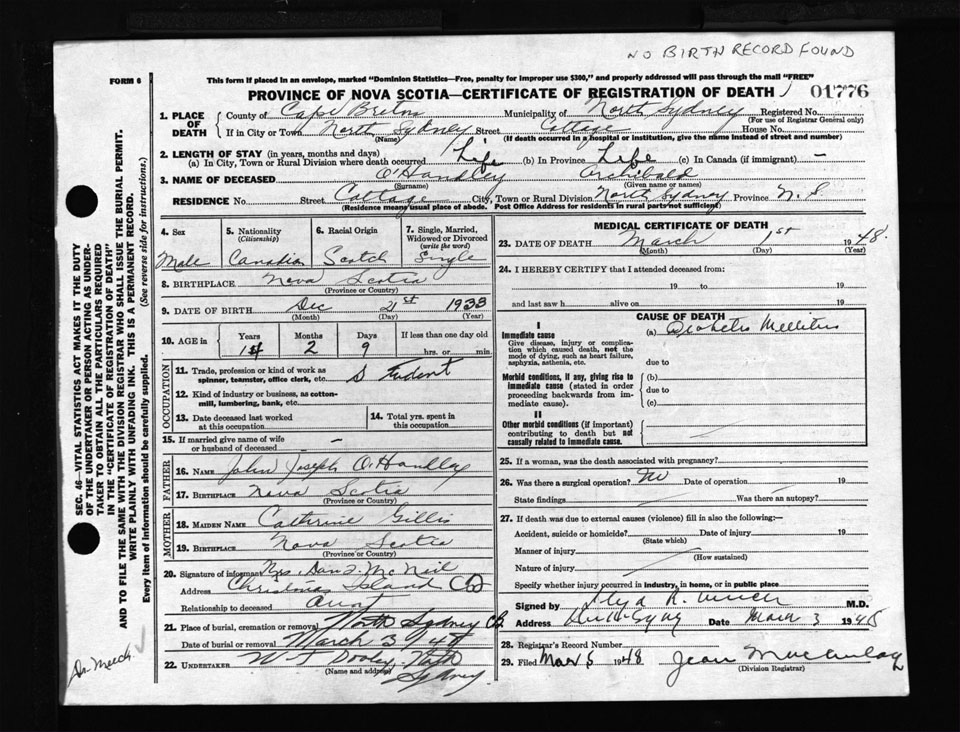 NO BIRTH RECORD FOUND
FORM 6
This form if placed in an envelope, marked "Dominion Statistics—Free, penalty for improper use $300," and properly addressed will pass through the mail "FREE"
PROVINCE OF NOVA SCOTIA—CERTIFICATE OF REGISTRATION OF DEATH
01776
1. PLACE OF DEATH
County of Cape Breton Municipality of North Sydney Registered No.
(For use of Registrar General only)
If in City or Town North Sydney Street Cottage House No.
(Name) (If death occurred in a hospital or institution, give the name instead of street and number)
2. LENGTH OF STAY (in years, months and days)
(a) In City, Town or Rural Division where death occurred Life (b) In Province Life (c) In Canada (if immigrant) —
3. NAME OF DECEASED O'Handley Archibald
(Surname) (Given name or names)
RESIDENCE No. Street Cottage City, Town or Rural Division North Sydney Province N. S.
(Residence means usual place of abode. Post Office Address for residents in rural parts not sufficient)
4. Sex Male
5. Nationality (Citizenship) Canadian
6. Racial Origin Scotch
7. Single, Married, Widowed or Divorced (write the word) Single
8. BIRTHPLACE Nova Scotia
(Province or Country)
9. DATE OF BIRTH Dec 21st 1933
(Month) (Day) (Year)
10. AGE in Years Months Days If less than one day old
14 2 9 hrs. or min.
OCCUPATION
11. Trade, profession or kind of work as spinner, teamster, office clerk, etc. Student
12. Kind of industry or business, as cotton-mill, lumbering, bank, etc.
13. Date deceased last worked at this occupation
14. Total yrs. spent in this occupation
15. If married give name of wife or husband of deceased —
FATHER
16. NAME John Joseph O'Handley
17. BIRTHPLACE Nova Scotia
(Province or Country)
MOTHER
18. MAIDEN NAME Catherine Gillis
19. BIRTHPLACE Nova Scotia
(Province or Country)
20. Signature of informant Mrs. Dan J. McNeil
Address Christmas Island CB
Relationship to deceased Aunt
21. Place of burial, cremation or removal North Sydney CB
Date of burial or removal March 3/48
22. UNDERTAKER W J Dooley, North Sydney
(Name and address)
MEDICAL CERTIFICATE OF DEATH
23. DATE OF DEATH March 1st 1948.
(Month) (Day) (Year)
24. I HEREBY CERTIFY that I attended deceased from:
19 to 19
and last saw h alive on 19
CAUSE OF DEATH
I
Immediate cause (a) Diabetes Mellitus
Give disease, injury or complication which caused death, not the mode of dying, such as heart failure, asphyxia, asthenia, etc.
due to
Morbid conditions, if any, giving rise to immediate cause (stated in order proceeding backwards from immediate cause).
(b)
due to
(c)
II
Other morbid conditions (if important) contributing to death but not causally related to immediate cause.
25. If a woman, was the death associated with pregnancy?
26. Was there a surgical operation? No Date of operation 19
State findings Was there an autopsy?
27. If death was due to external causes (violence) fill in also the following:—
Accident, suicide or homicide? Date of injury 19
(State which)
Manner of injury
(How sustained)
Nature of injury
Specify whether injury occurred in industry, in home, or in public place
Signed by M.D.
Address Date March 3 1948
28. Registrar's Record Number
29. Filed Mar 5 1948
(Division Registrar)
SEC. 46—VITAL STATISTICS ACT MAKES IT THE DUTY
OF THE UNDERTAKER OR PERSON ACTING AS UNDER-
TAKER TO OBTAIN ALL THE PARTICULARS REQUIRED
IN THE "CERTIFICATE OF REGISTRATION OF DEATH"
AND TO FILE THE SAME WITH THE DIVISION REGISTRAR WHO SHALL ISSUE THE BURIAL PERMIT.
WRITE PLAINLY WITH UNFADING INK. THIS IS A PERMANENT RECORD.
Every item of information should be carefully supplied. (See reverse side for instructions.)
Dr. Meech